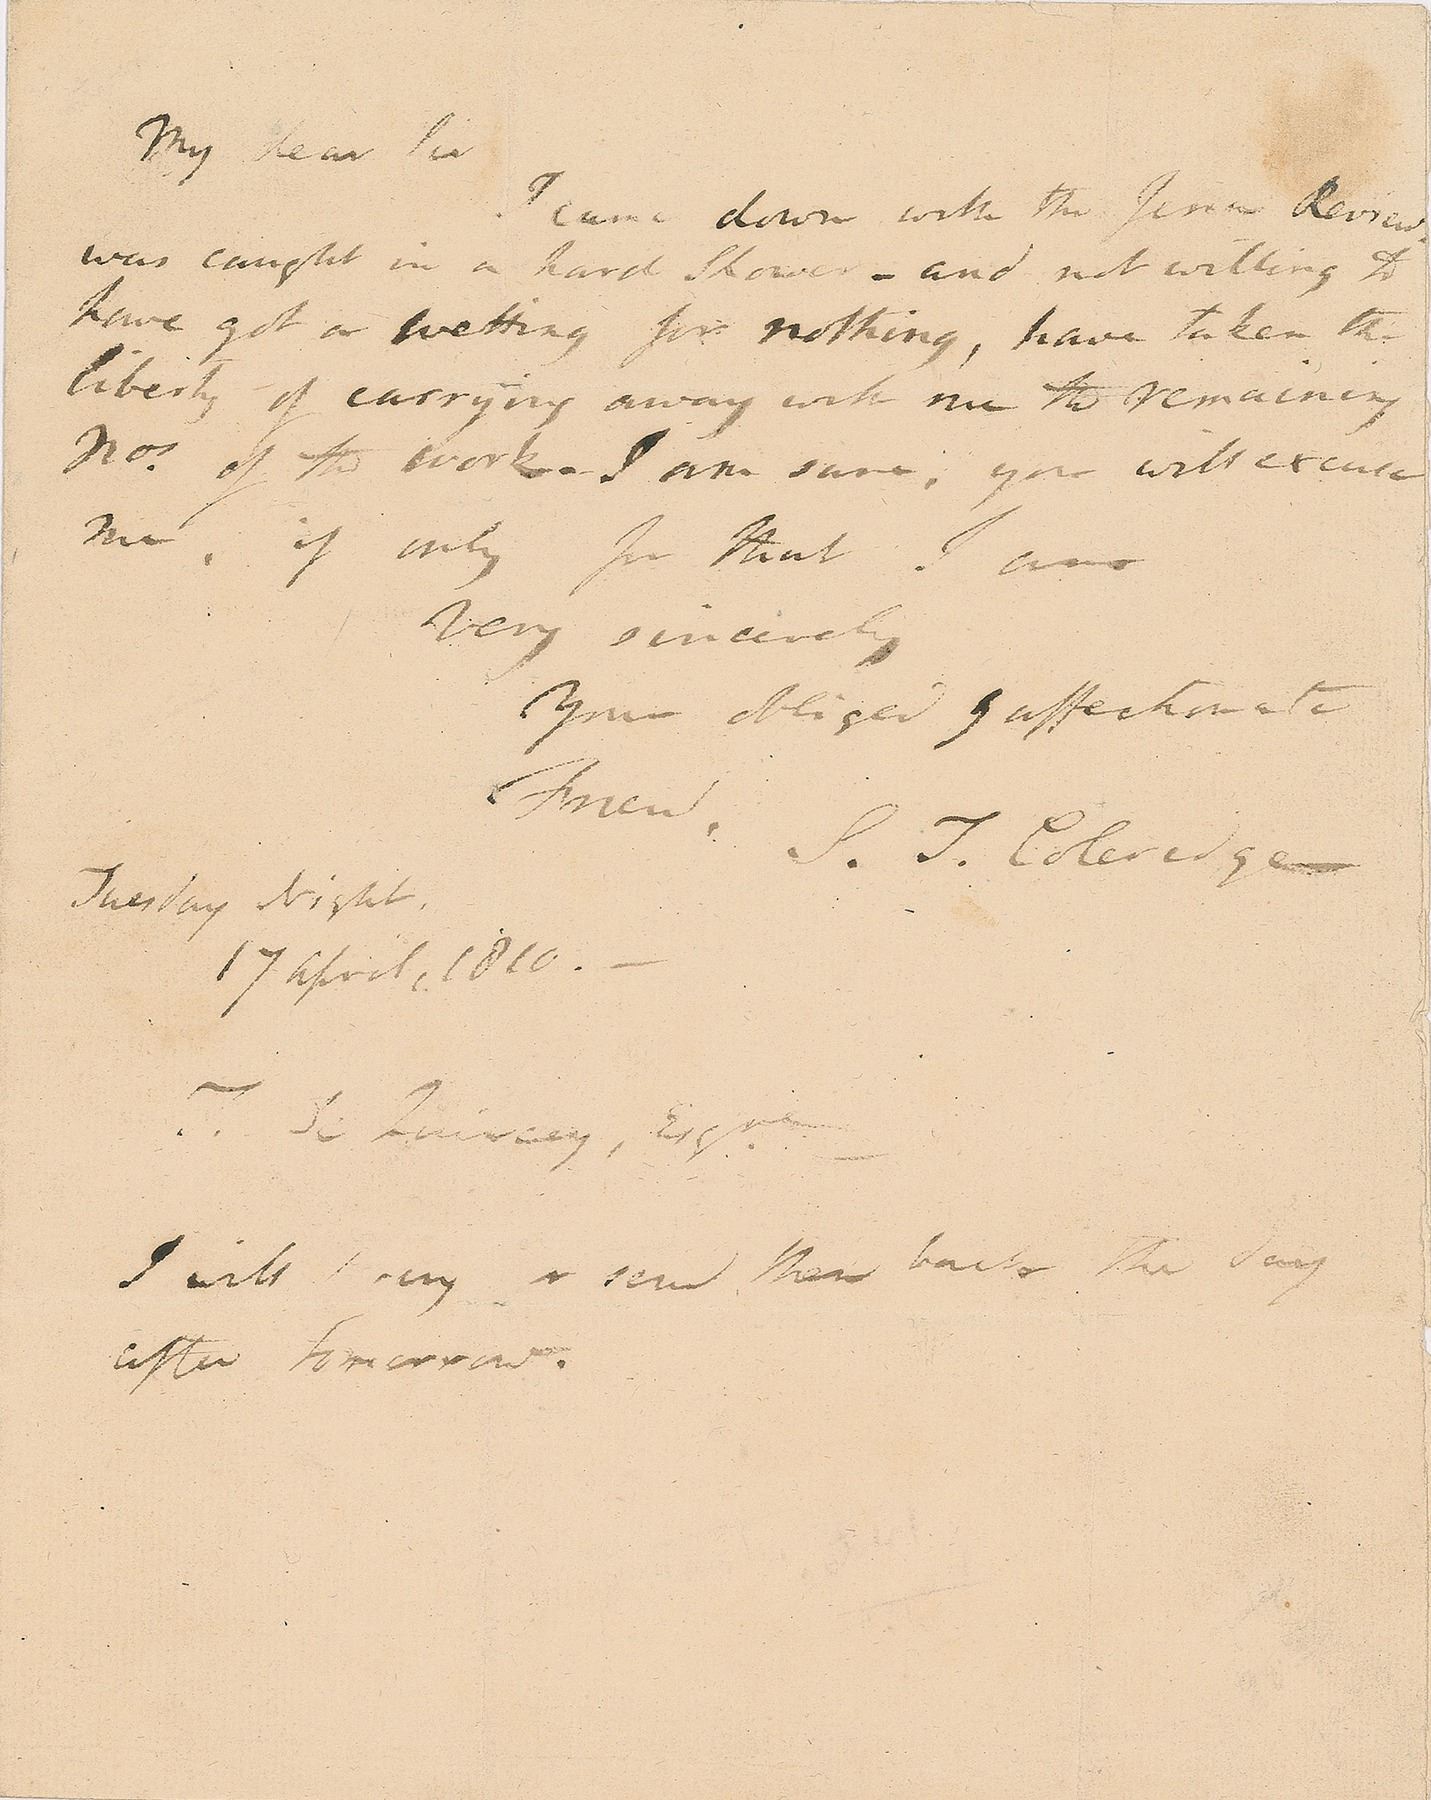 My dear Sir
I came down with the Jena Review,
was caught in a hard Shower - and not willing to
have got a wetting for nothing, have taken the
liberty of carrying away with me the remaining
Nos. of the work. - I am sure, you will excuse
me, if only for that I am
Very sincerely
Your obliged & affectionate
Friend,
S. T. Coleridge
Tuesday Night.
17 April, 1810. —
T. De Quincey, Esqre
I will send them back the day
after tomorrow.